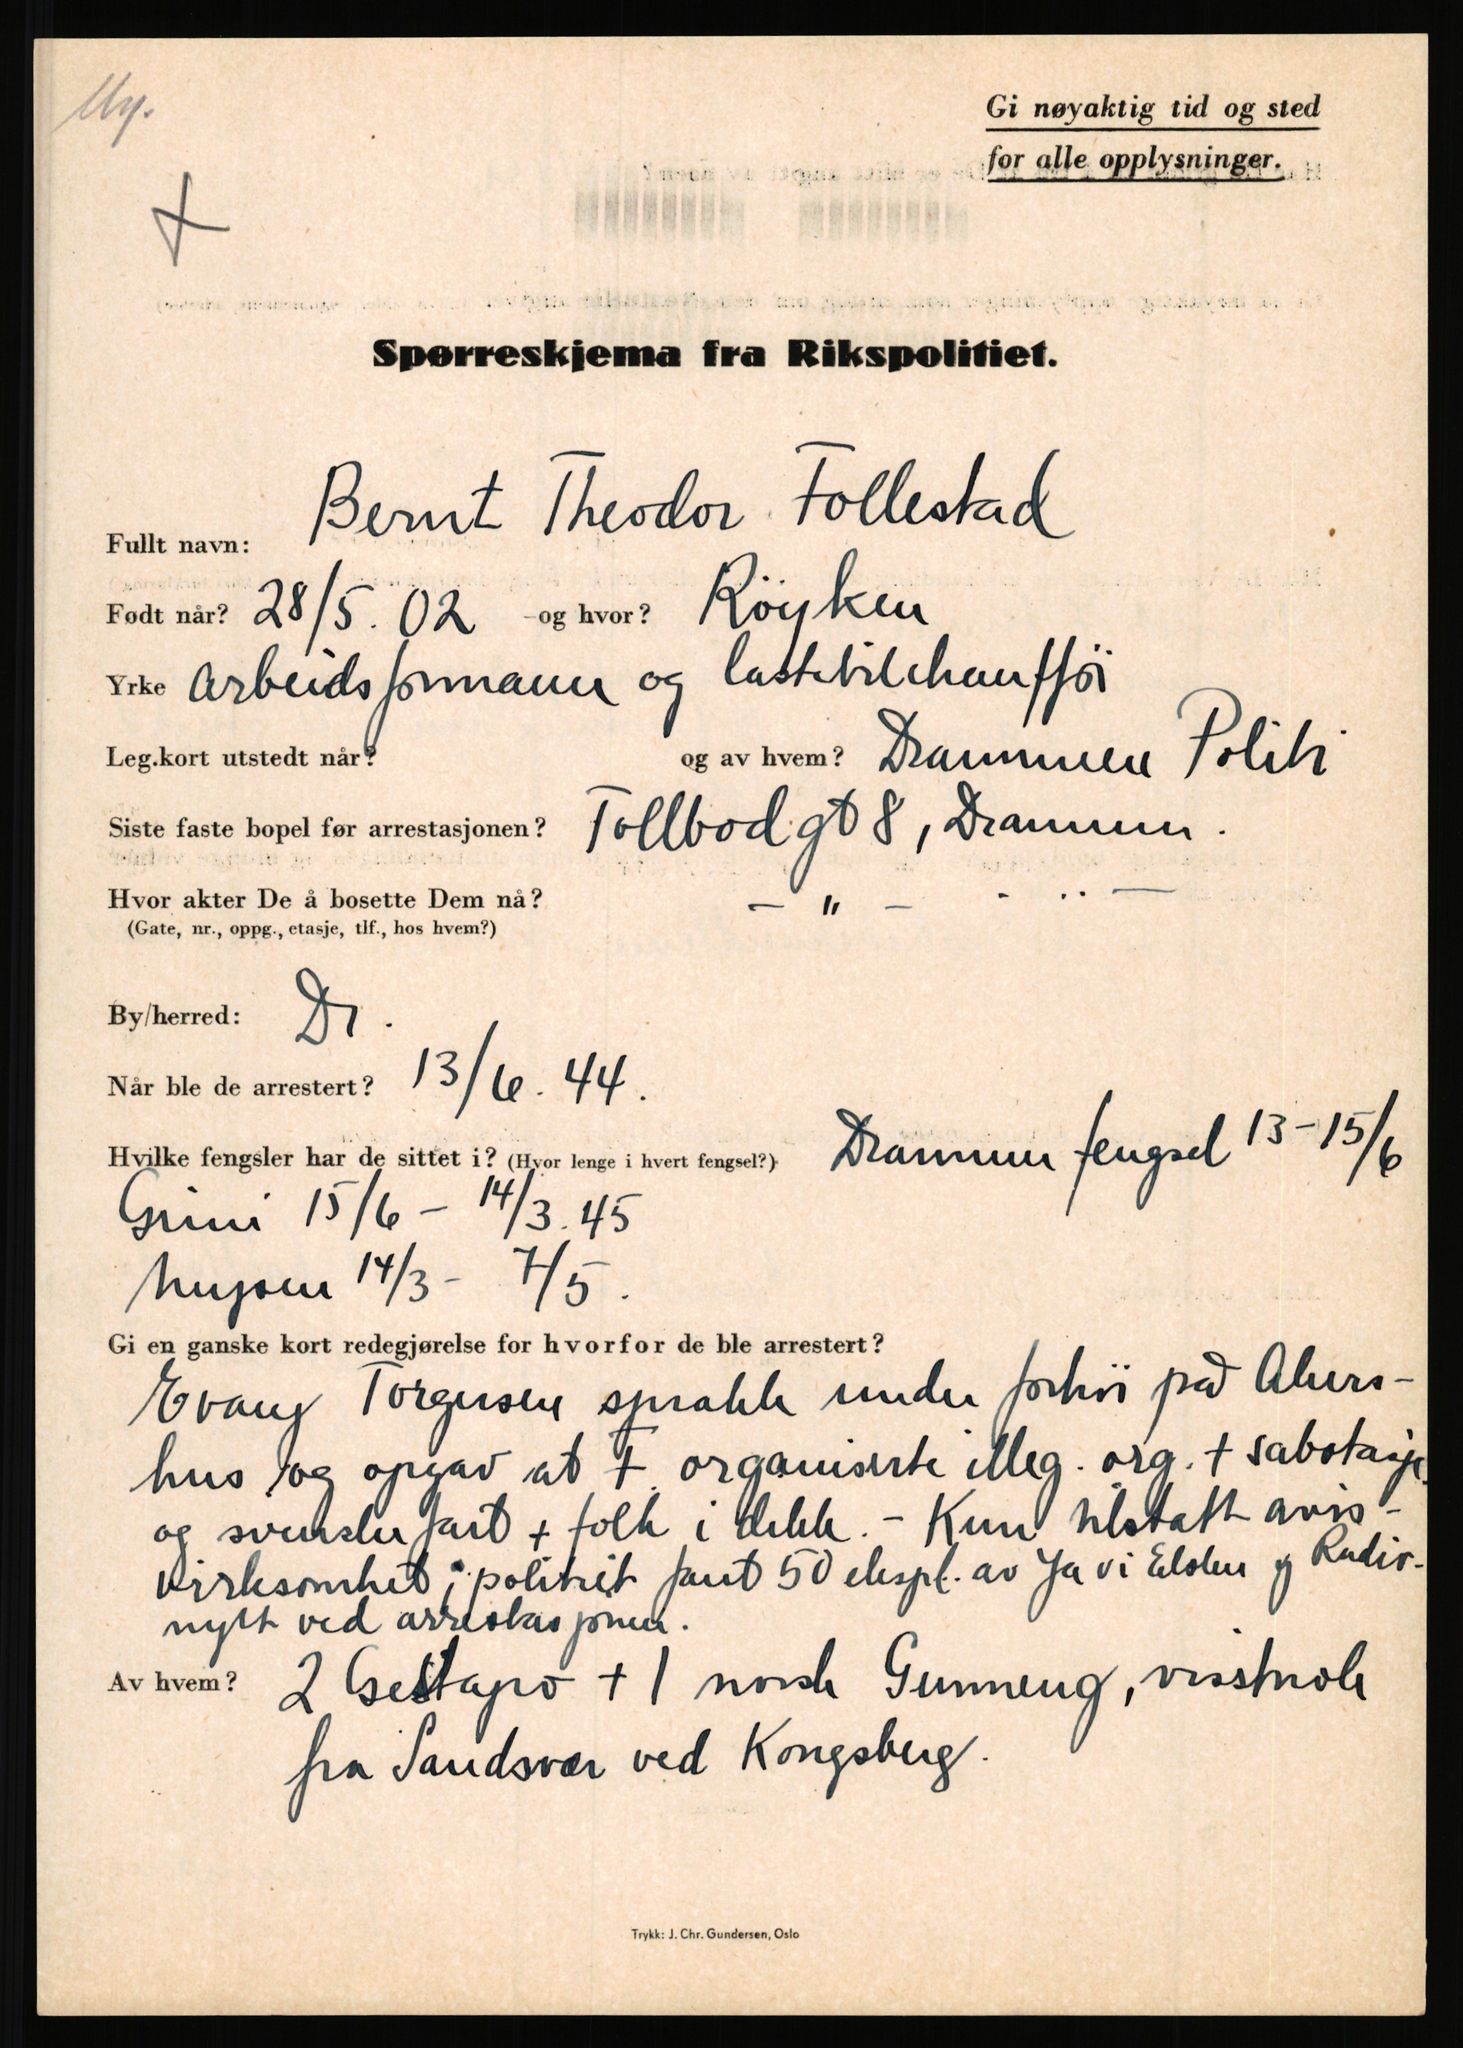 My.
Gi nøyaktig tid og sted
for alle opplysninger.
Spørreskjema fra Rikspolitiet.
Fullt navn: Bernt Theodor Follestad
Født når? 28/5. 02 og hvor? Röyken
Yrke arbeidsformann og lastebilchaufför
Leg.kort utstedt når? og av hvem? Drammen Politi
Siste faste bopel før arrestasjonen? Tollbodgt 8, Drammen.
Hvor akter De å bosette Dem nå? — " — - .. —
(Gate, nr., oppg., etasje, tlf., hos hvem?)
By/herred: Dr.
Når ble de arrestert? 13/6. 44.
Hvilke fengsler har de sittet i? (Hvor lenge i hvert fengsel?) Drammen fengsel 13-15/6
Grini 15/6 - 14/3. 45
Mysen 14/3 - 7/5.
Gi en ganske kort redegjørelse for hvorfor de ble arrestert?
Evang Torgersen sprakk under forhör på Akers-
hus og opgav at F. organiserte illeg. org. + sabotasje
og svenskefart + folk i dekk. - Kun tilstått avis-
virksomhet; politiet fant 50 ekspl. av Ja vi Elsker og Radio-
nytt ved arrestasjonen.
Av hvem? 2 Gestapo + 1 norsk Gunneng, visstnok
fra Sandsvær ved Kongsberg.
Trykk: J. Chr. Gundersen, Oslo